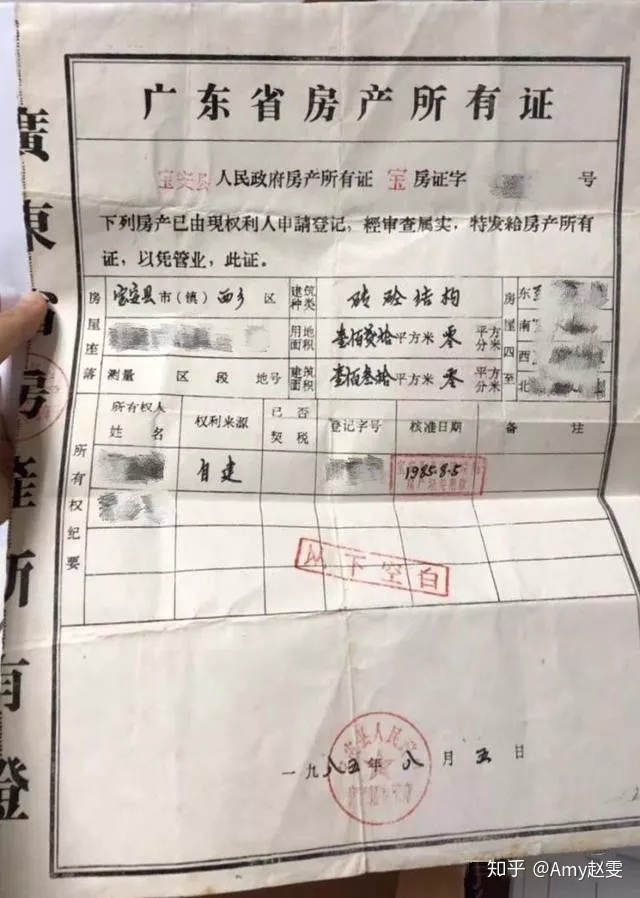 广东省房产所有证
宝安县人民政府房产所有证 宝房证字 号
下列房产已由现权利人申請登记，經审查属实，特发給房产所有
证，以凭管业，此证。
房屋座落 宝安县市（镇）西乡 区 建筑种类 砖砼结构 房屋四至 东
用地面积 壹佰贰拾平方米 零 平方分米 南
西
测量 区 段 地号 建筑面积 壹佰叁拾平方米 零 平方分米 北
所有权纪要 所有权人姓名 权利来源 已否契税 登记字号 核准日期 备 注
自建 1985.8.5
以下空白
一九八五年八月五日
廣東省房產所有證
知乎 @Amy赵雯